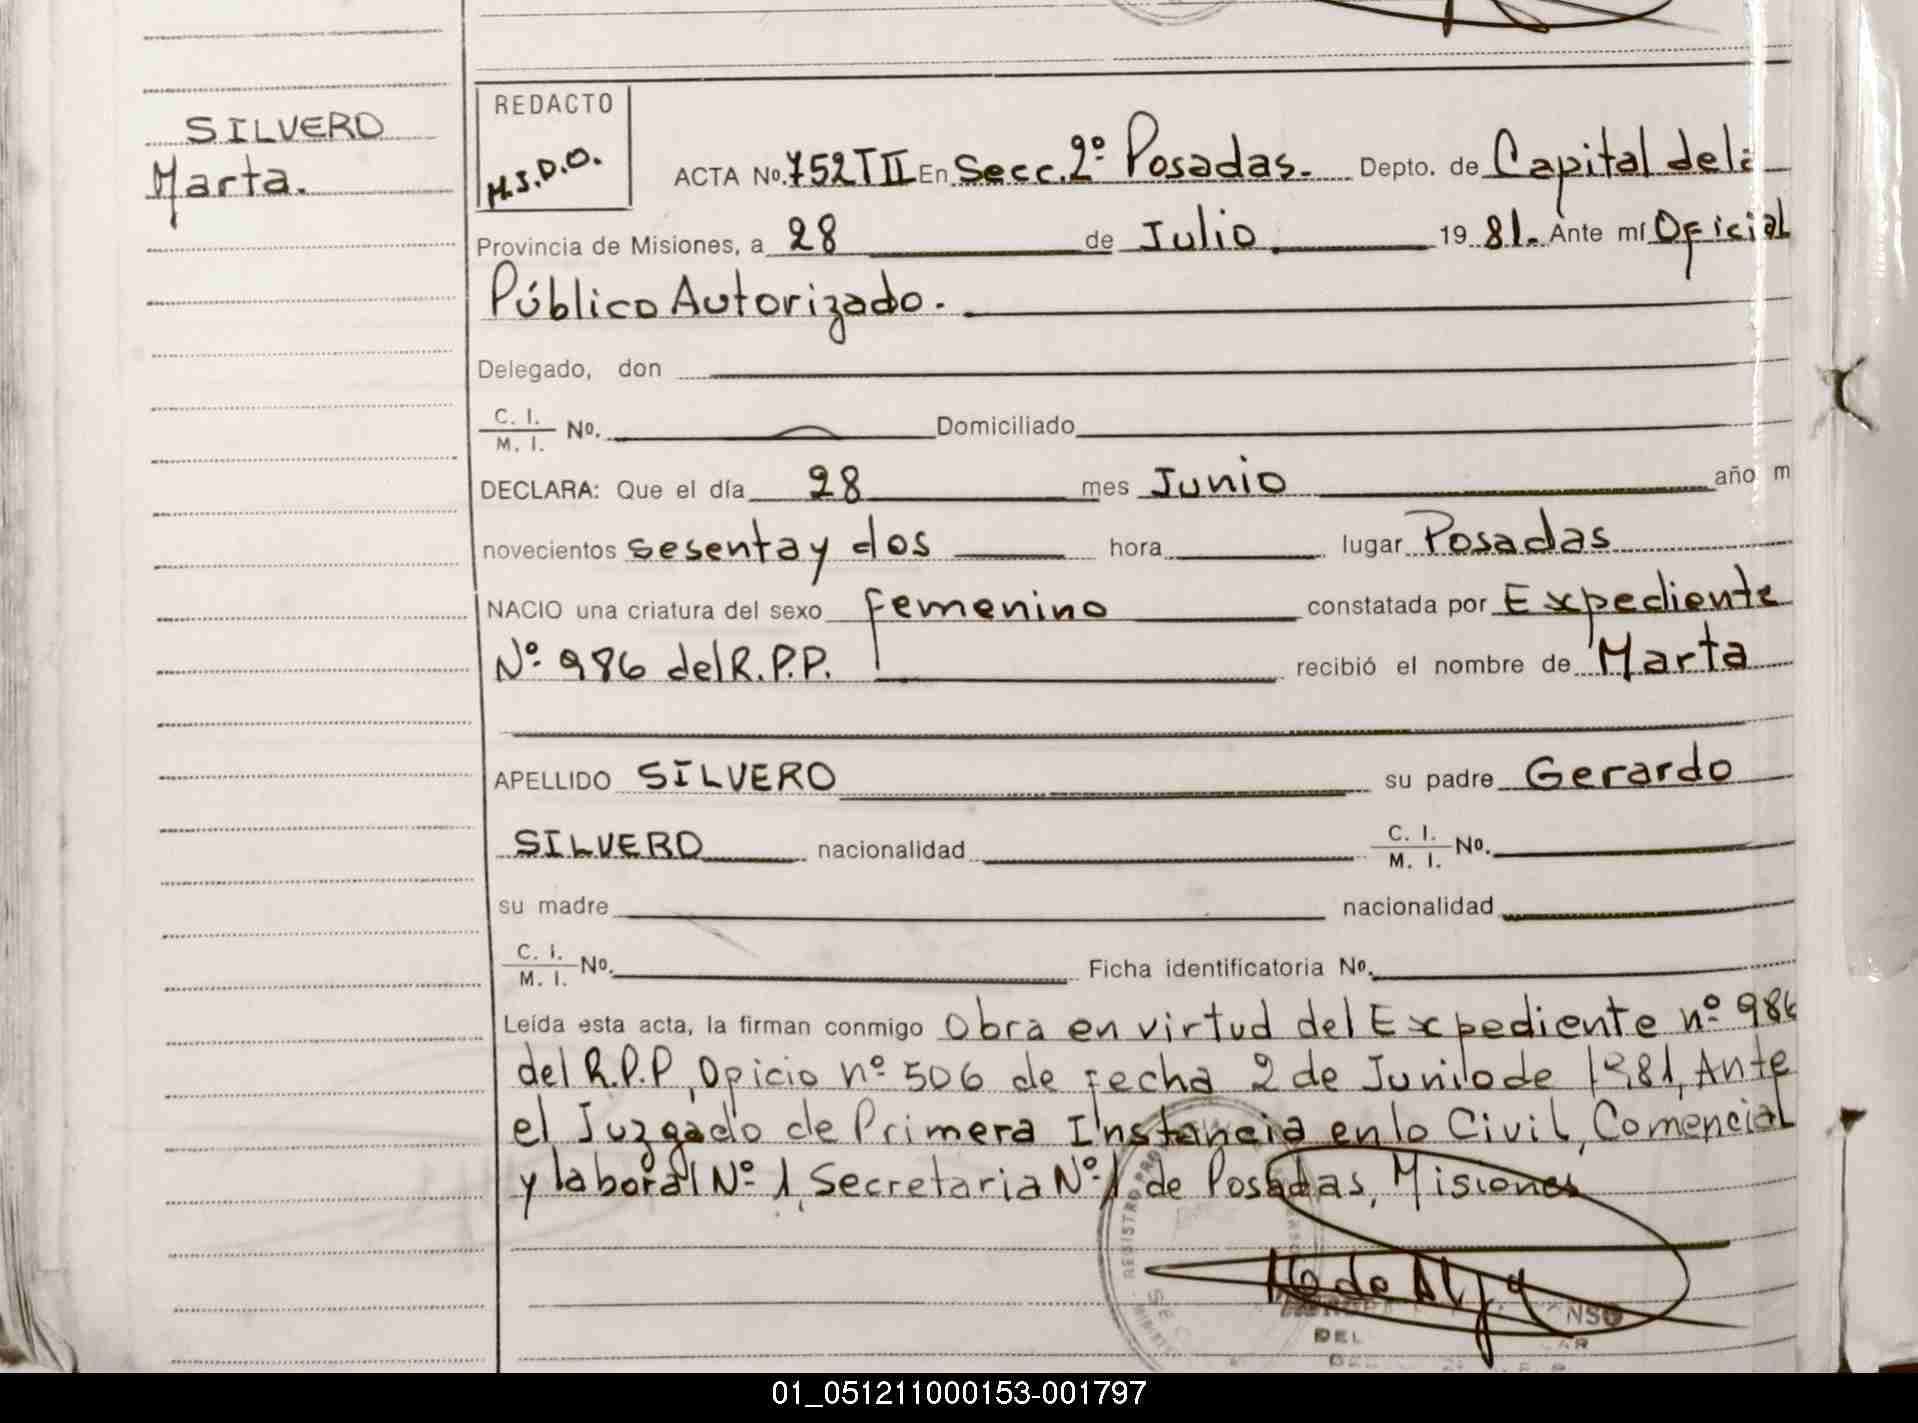 SILVERO
Marta.
REDACTO
M.S.D.O.
ACTA No. 752 T II En Secc. 2º Posadas. Depto. de Capital de la
Provincia de Misiones, a 28 de Julio 1981. Ante mí Oficial
Público Autorizado.
Delegado, don
C. I. / M. I. No. Domiciliado
DECLARA: Que el día 28 mes Junio año m
novecientos sesenta y dos hora lugar Posadas
NACIO una criatura del sexo femenino constatada por Expediente
Nº 986 del R.P.P. recibió el nombre de Marta
APELLIDO SILVERO su padre Gerardo
SILVERO nacionalidad C. I. / M. I. No.
su madre nacionalidad
C. I. / M. I. No. Ficha identificatoria No.
Leída esta acta, la firman conmigo Obra en virtud del Expediente nº 986
del R.P.P, Oficio nº 506 de fecha 2 de de 1981, Ante
el Juzgado de Primera Instancia en lo Civil, Comercial
y laboral Nº 1, Secretaria Nº 1 de Posadas, Misiones
DEL
01_051211000153-001797